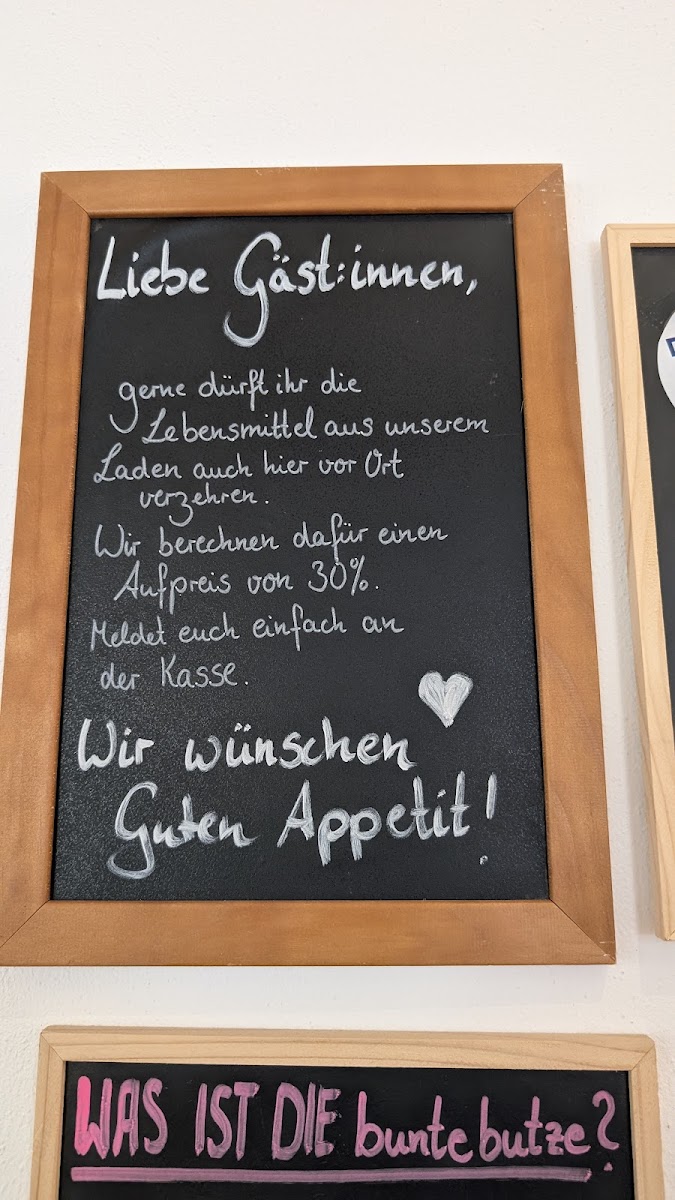 Liebe Gäst:innen,
gerne dürft ihr die
Lebensmittel aus unserem
Laden auch hier vor Ort
verzehren.
Wir berechnen dafür einen
Aufpreis von 30%.
Meldet euch einfach an
der Kasse.
Wir wünschen
Guten Appetit!
WAS IST DIE bunte butze?